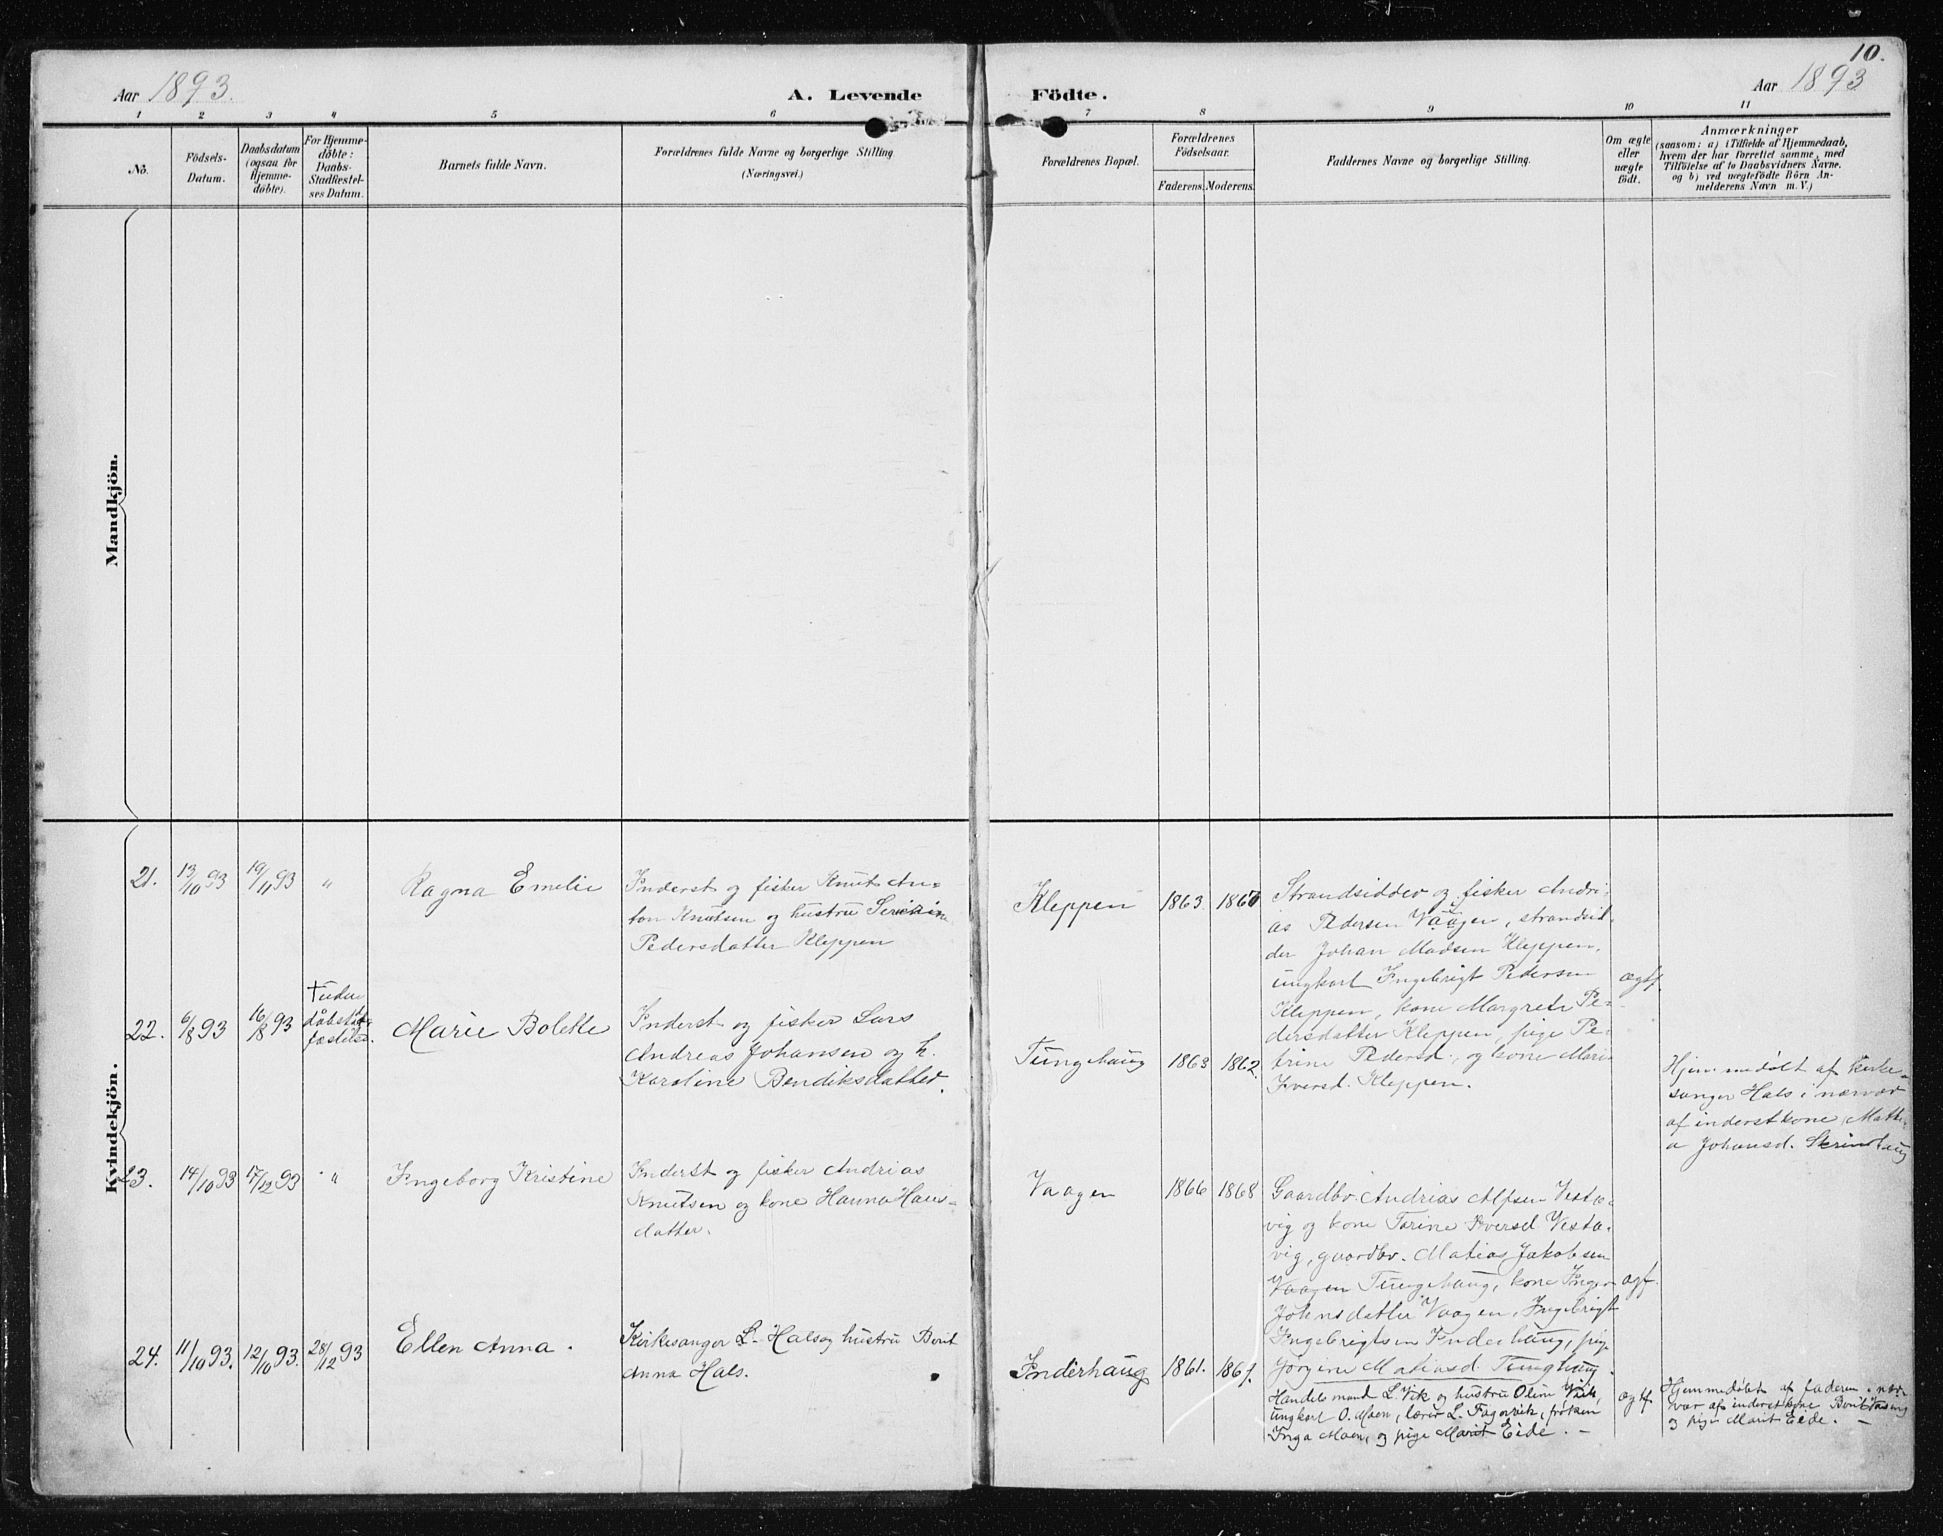 10.
Aar 1893. A. Levende Födte. Aar 1893
1 2 3 4 5 6 7 8 9 10 11
No.
Födsels-
Datum.
Daabsdatum
(ogsaa for
Hjemme-
döbte).
For Hjemme-
døbte:
Daabs-
Stadfestel-
ses Datum.
Barnets fulde Navn.
Forældrenes fulde Navne og borgerlige Stilling
(Næringsvei.)
Forældrenes Bopæl.
Forældrenes
Födselsaar.
Faderens. Moderens.
Faddernes Navne og borgerlige Stilling.
Om ægte
eller
uægte
födt.
Anmærkninger
(saasom: a) i Tilfælde af Hjemmedaab,
hvem der har forrettet samme, med
Tilföielse af to Daabsvidners Navne.
og b) ved uægtefödte Börn An-
melderens Navn m. V.)
Mandkjön.
Kvindekjön.
21. 13/10 93 19/11 93 "
Ragna Emelie
Inderst og fisker Knut An-
ton Knutsen og hustru
Pedersdatter Kleppen
Kleppen 1863 1867
Strandsidder og fisker Andri-
as Pedersen Vaagen, strandsid-
der Johan Madsen Kleppen,
ungkarl Ingebrigt Pedersen
Kleppen, kone Margrete Pe-
dersdatter Kleppen, pige Pe-
trine Pedersd., og kone Marie
Iversd. Kleppen.
ægtf.
22. 6/8 93 16/8 93
† uden
dåbstad-
fæstelse.
Marie Bolette
Inderst og fisker Lars
Andreas Johansen og h.
Karoline Bendiksdatter.
Tungehaug 1863 1862.
Hjemmedøbt af kirke-
sanger Hals i nærvær
af inderstkone Mathe-
a Johansd. Skrinhaug
23. 14/10 93 17/12 93 "
Ingeborg Kristine
Inderst og fisker Andrias
Knutsen og kone Hanna Hans-
datter.
Vaagen 1866 1868
Gaardbr. Andrias Alfsen Vesta-
vig og kone Tarine Iversd Vesta-
vig, gaardbr. Matias Jakobsen
Vaagen Tungehaug, kone Inger
Johnsdatter Vaagen, Ingebrigt
Ingebrigtsen Inderhaug, pige
Jørgine Matiasd. Tunghaug.
ægf.
24. 11/10 93. 12/10 93. 28/12 93
Ellen Anna.
Kirkesanger L. Hals og hustru Berit
Anna Hals.
Inderhaug 1861. 1867.
Handelsmand L. Vik og hustru Oline Vik,
ungkarl O. Moen, lærer L. Fagervik, frøken
Inga Moen, og pige Marit Eide. –
ægtf.
Hjemmedøbt af faderen i nær-
vær af inderstkone Berit
og pige Marit Eide. –